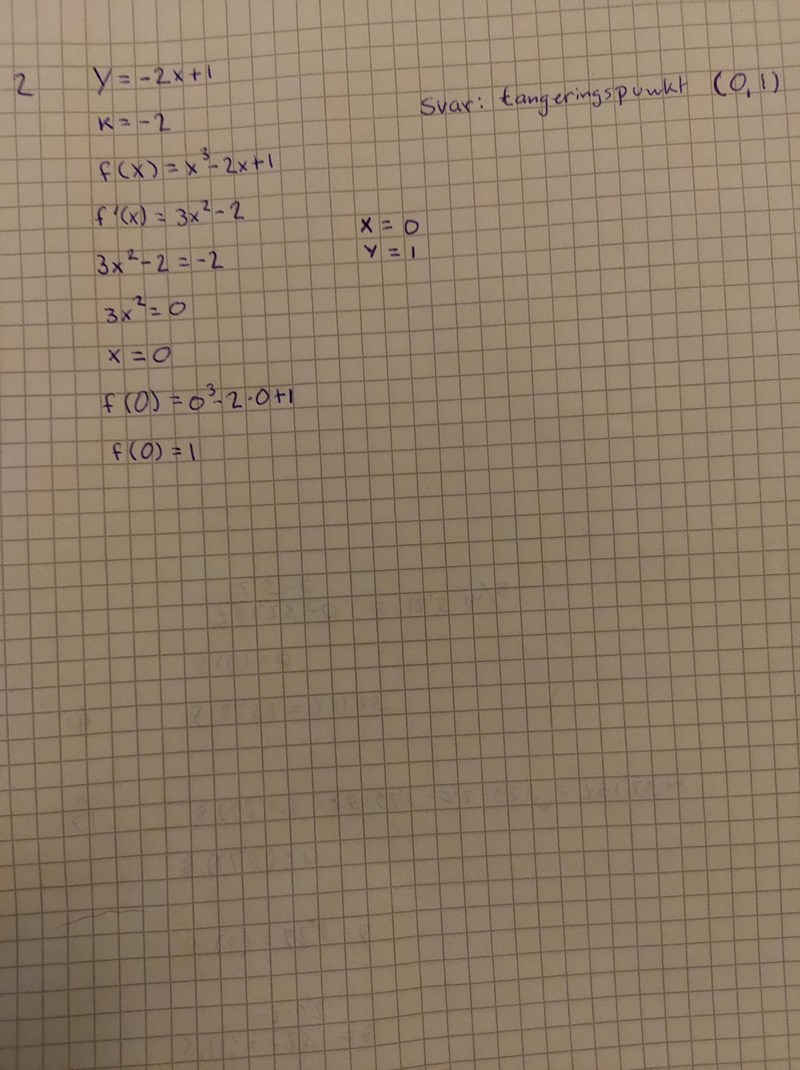 2 y = -2x+1
Svar: tangeringspunkt (0,1)
K = -2
f(x) = x³-2x+1
f'(x) = 3x²-2
x = 0
3x²-2 = -2
y = 1
3x² = 0
x = 0
f(0) = 0³-2·0+1
f(0) = 1